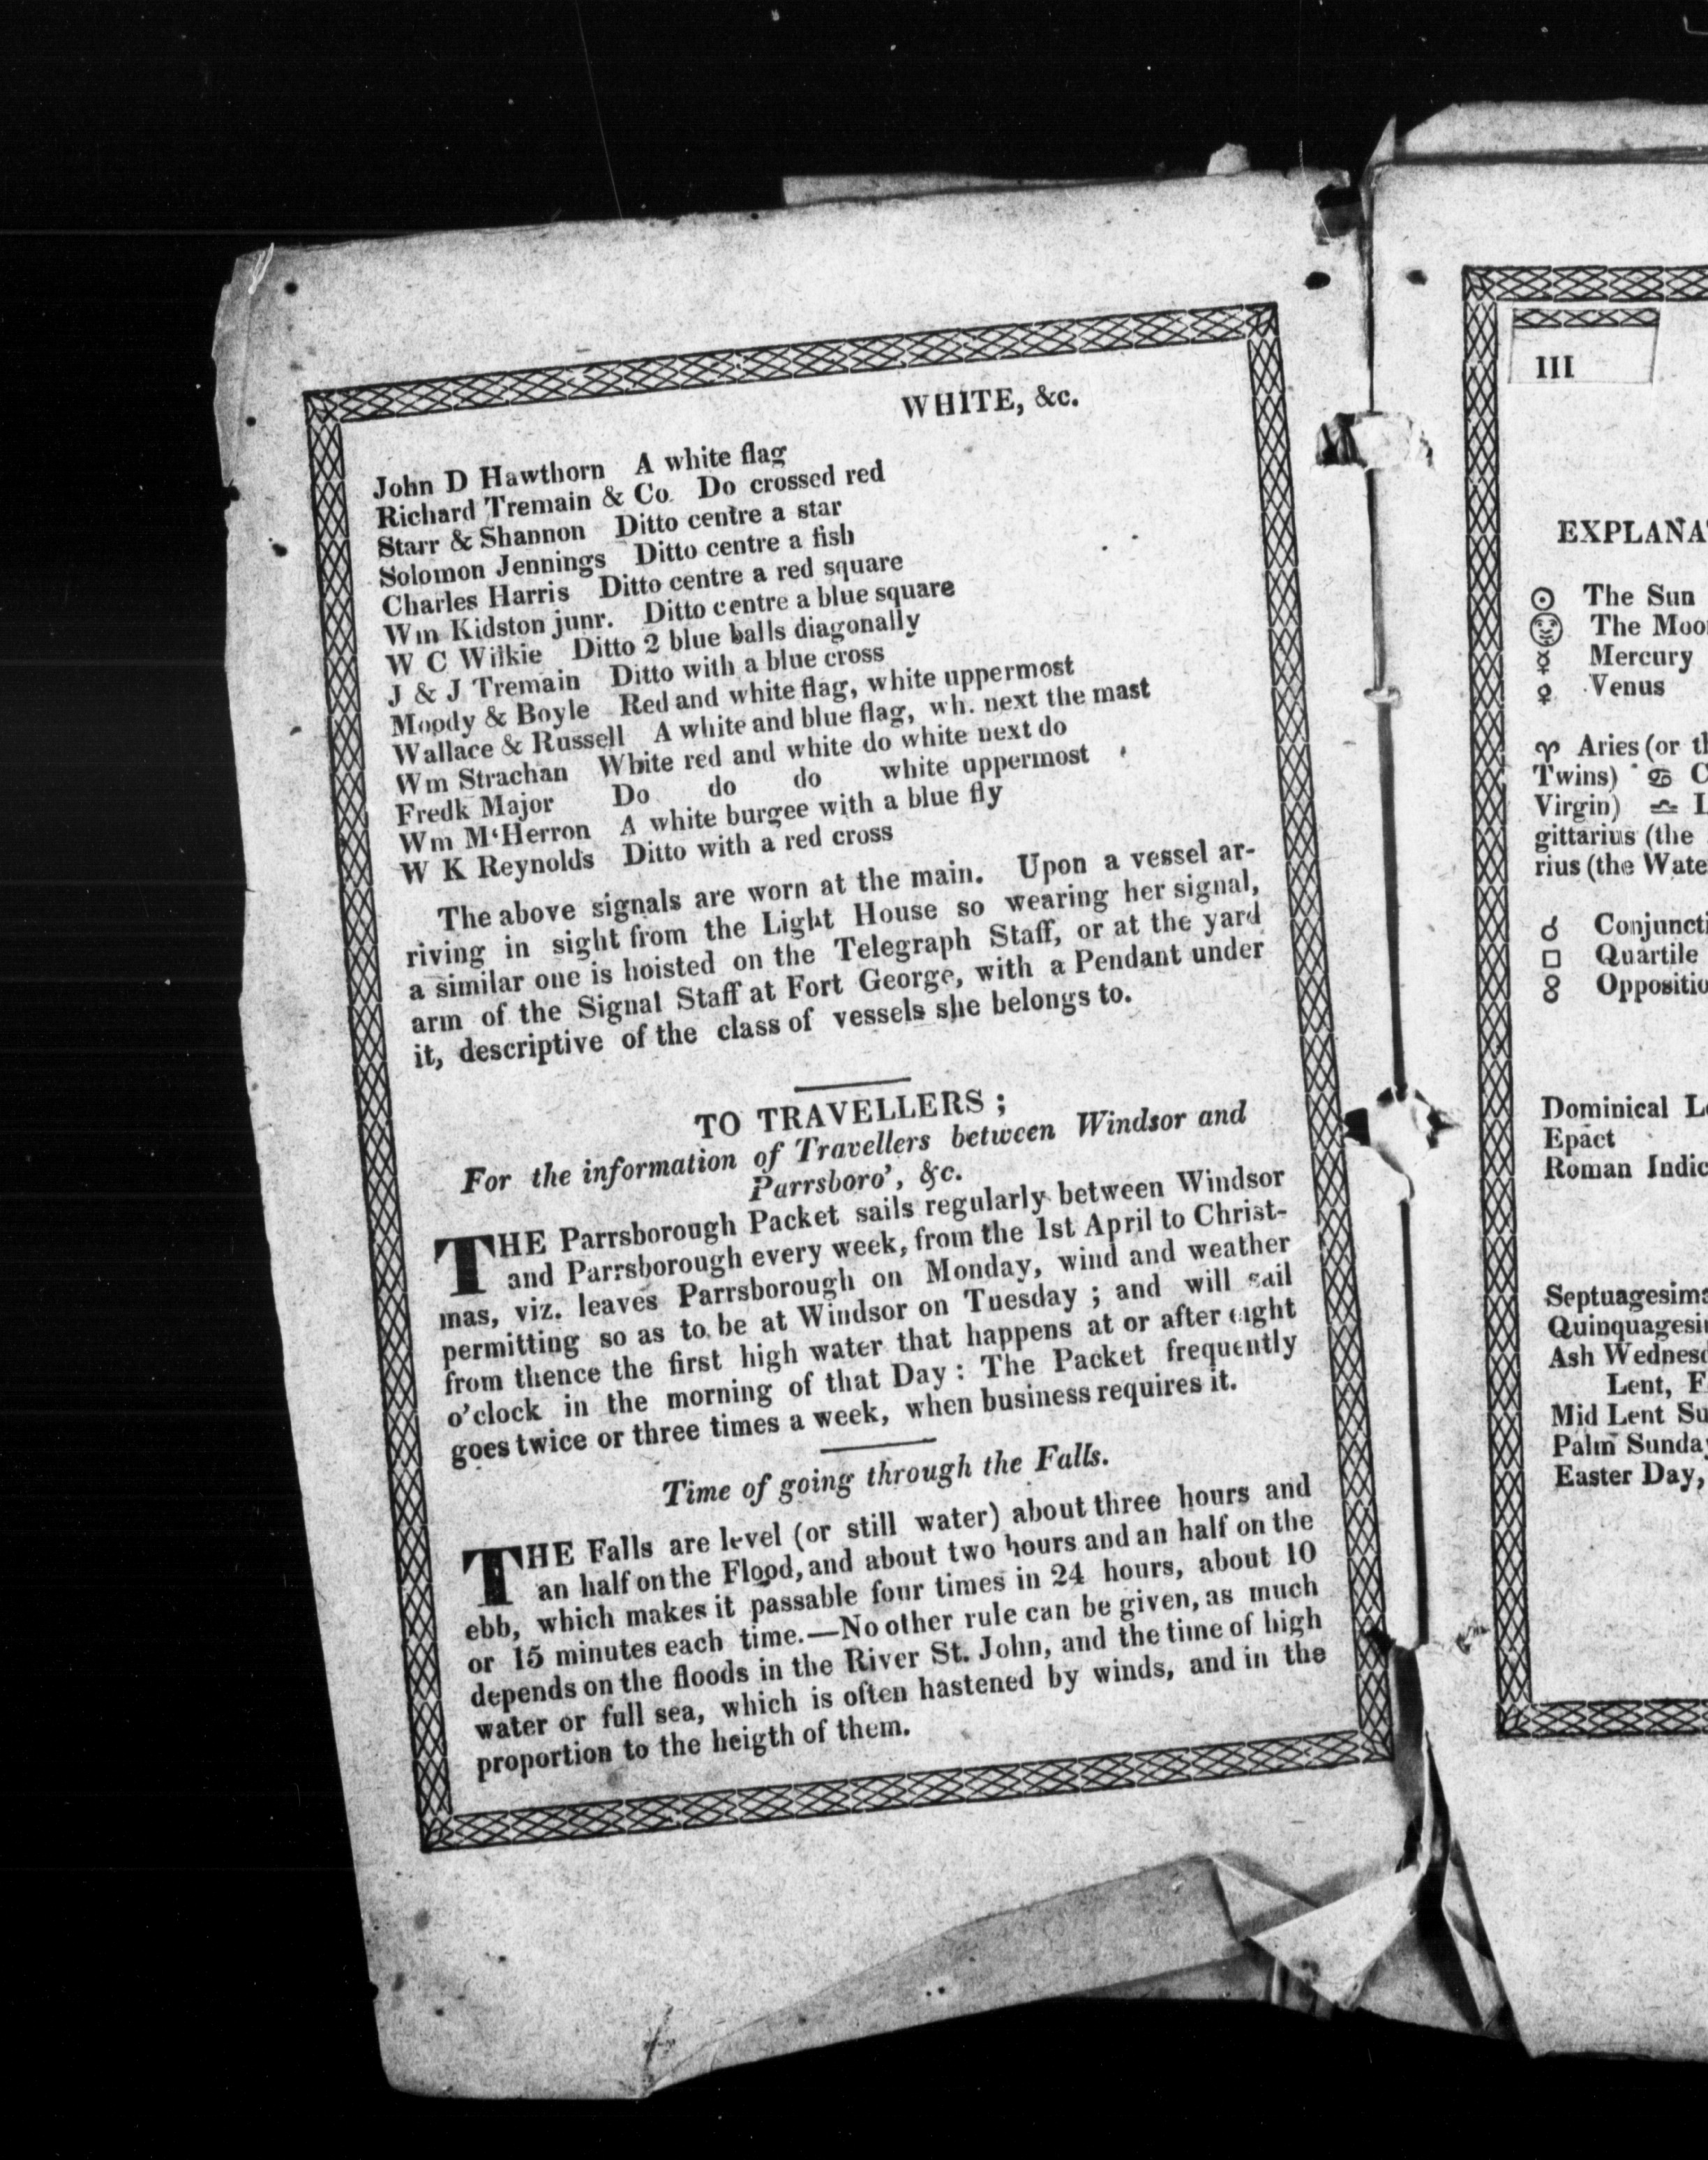 WHITE, &c.
John D Hawthorn A white flag
Richard Tremain & Co. Do crossed red
Starr & Shannon Ditto centre a star
Solomon Jennings Ditto centre a fish
Charles Harris Ditto centre a red square
Wm Kidston junr. Ditto centre a blue square
W C Wilkie Ditto 2 blue balls diagonally
J & J Tremain Ditto with a blue cross
Moody & Boyle Red and white flag, white uppermost
Wallace & Russell A white and blue flag, wh. next the mast
Wm Strachan White red and white do white next do
Fredk Major Do do do white uppermost
Wm M'Herron A white burgee with a blue fly
W K Reynolds Ditto with a red cross
The above signals are worn at the main. Upon a vessel ar-
riving in sight from the Light House so wearing her signal,
a similar one is hoisted on the Telegraph Staff, or at the yard
arm of the Signal Staff at Fort George, with a Pendant under
it, descriptive of the class of vessels she belongs to.
TO TRAVELLERS;
For the information of Travellers between Windsor and
Parrsboro', &c.
THE Parrsborough Packet sails regularly between Windsor
and Parrsborough every week, from the 1st April to Christ-
mas, viz. leaves Parrsborough on Monday, wind and weather
permitting so as to be at Windsor on Tuesday; and will sail
from thence the first high water that happens at or after eight
o'clock in the morning of that Day: The Packet frequently
goes twice or three times a week, when business requires it.
Time of going through the Falls.
THE Falls are level (or still water) about three hours and
an half on the Flood, and about two hours and an half on the
ebb, which makes it passable four times in 24 hours, about 10
or 15 minutes each time.—No other rule can be given, as much
depends on the floods in the River St. John, and the time of high
water or full sea, which is often hastened by winds, and in the
proportion to the heigth of them.
III
EXPLANA
☉ The Sun
The Moo
☿ Mercury
♀ Venus
♈ Aries (or t
Twins) ♋ C
Virgin) ♎ L
gittarius (the
rius (the Wate
☌ Conjuncti
□ Quartile
☍ Oppositio
Dominical Le
Epact
Roman Indic
Septuagesima
Quinquagesi
Ash Wednesd
Lent, F
Mid Lent Su
Palm Sunday
Easter Day,